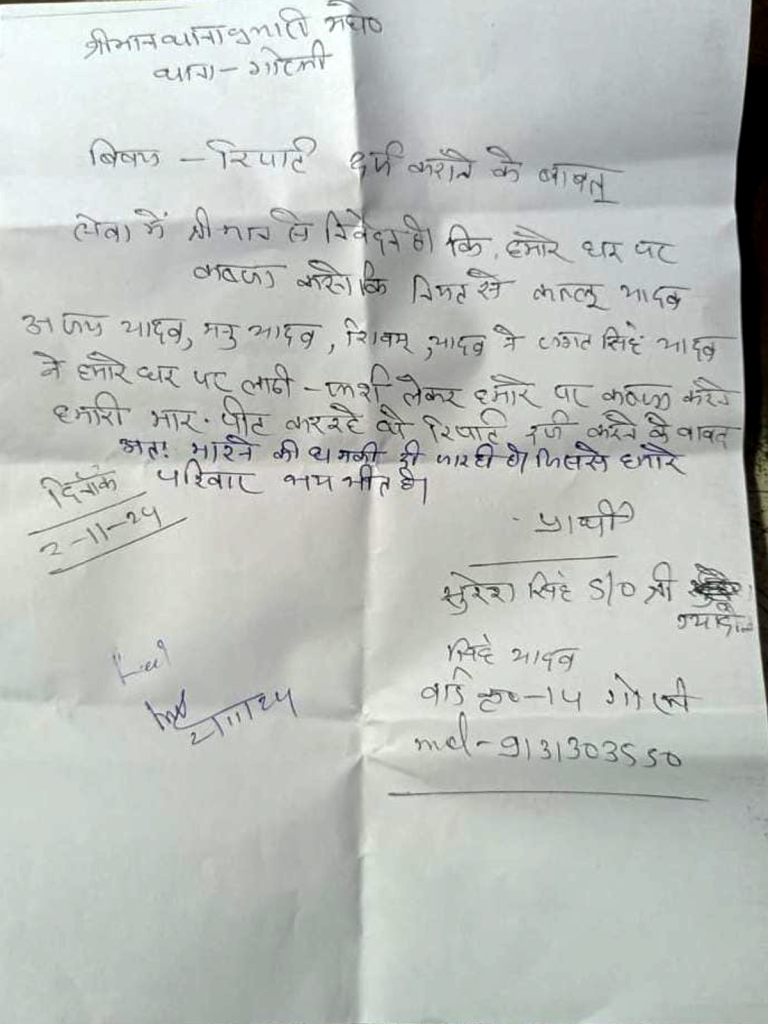 श्रीमान थाना प्रभारी महो०
थाना - गोरमी
बिषय - रिपोर्ट दर्ज कराने के बावत्
सेवा में श्रीमान से निवेदन है। कि, हमारे घर पर
कबजा करने कि नियत से कल्लू यादव
अजय यादव, मनु यादव, शिवम, यादव ने जगत सिंह यादव
ने हमारे घर पर लाठी - फर्शा लेकर हमारे पर कबजा करने
हमारी मार-पीट कर रहे थे रिपोर्ट दर्ज करने के बावद
अतः मारने की धमकी दी जा रही है। जिससे हमारे
परिवार भयभीत है।
दिनाँक
2-11-24
प्रार्थी
सुरेश सिंह S/O श्री
सिंह यादव
वार्ड क्र०-14 गोरमी
mol-9131303550
2/11/24